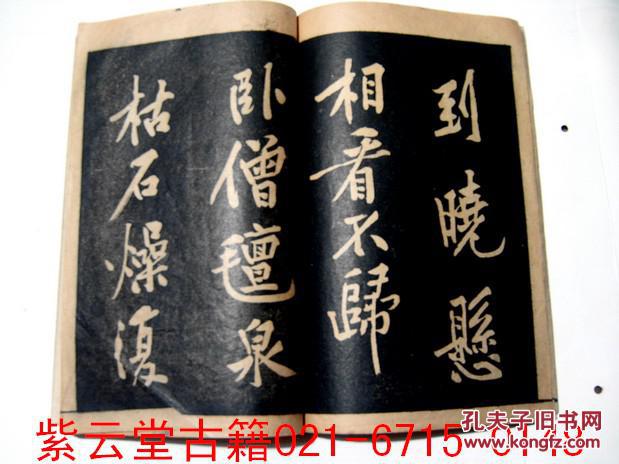 到曉懸
相看不歸
臥僧氊泉
枯石燥復
紫云堂古籍021-6715-
孔夫子旧书网
www.kongfz.com